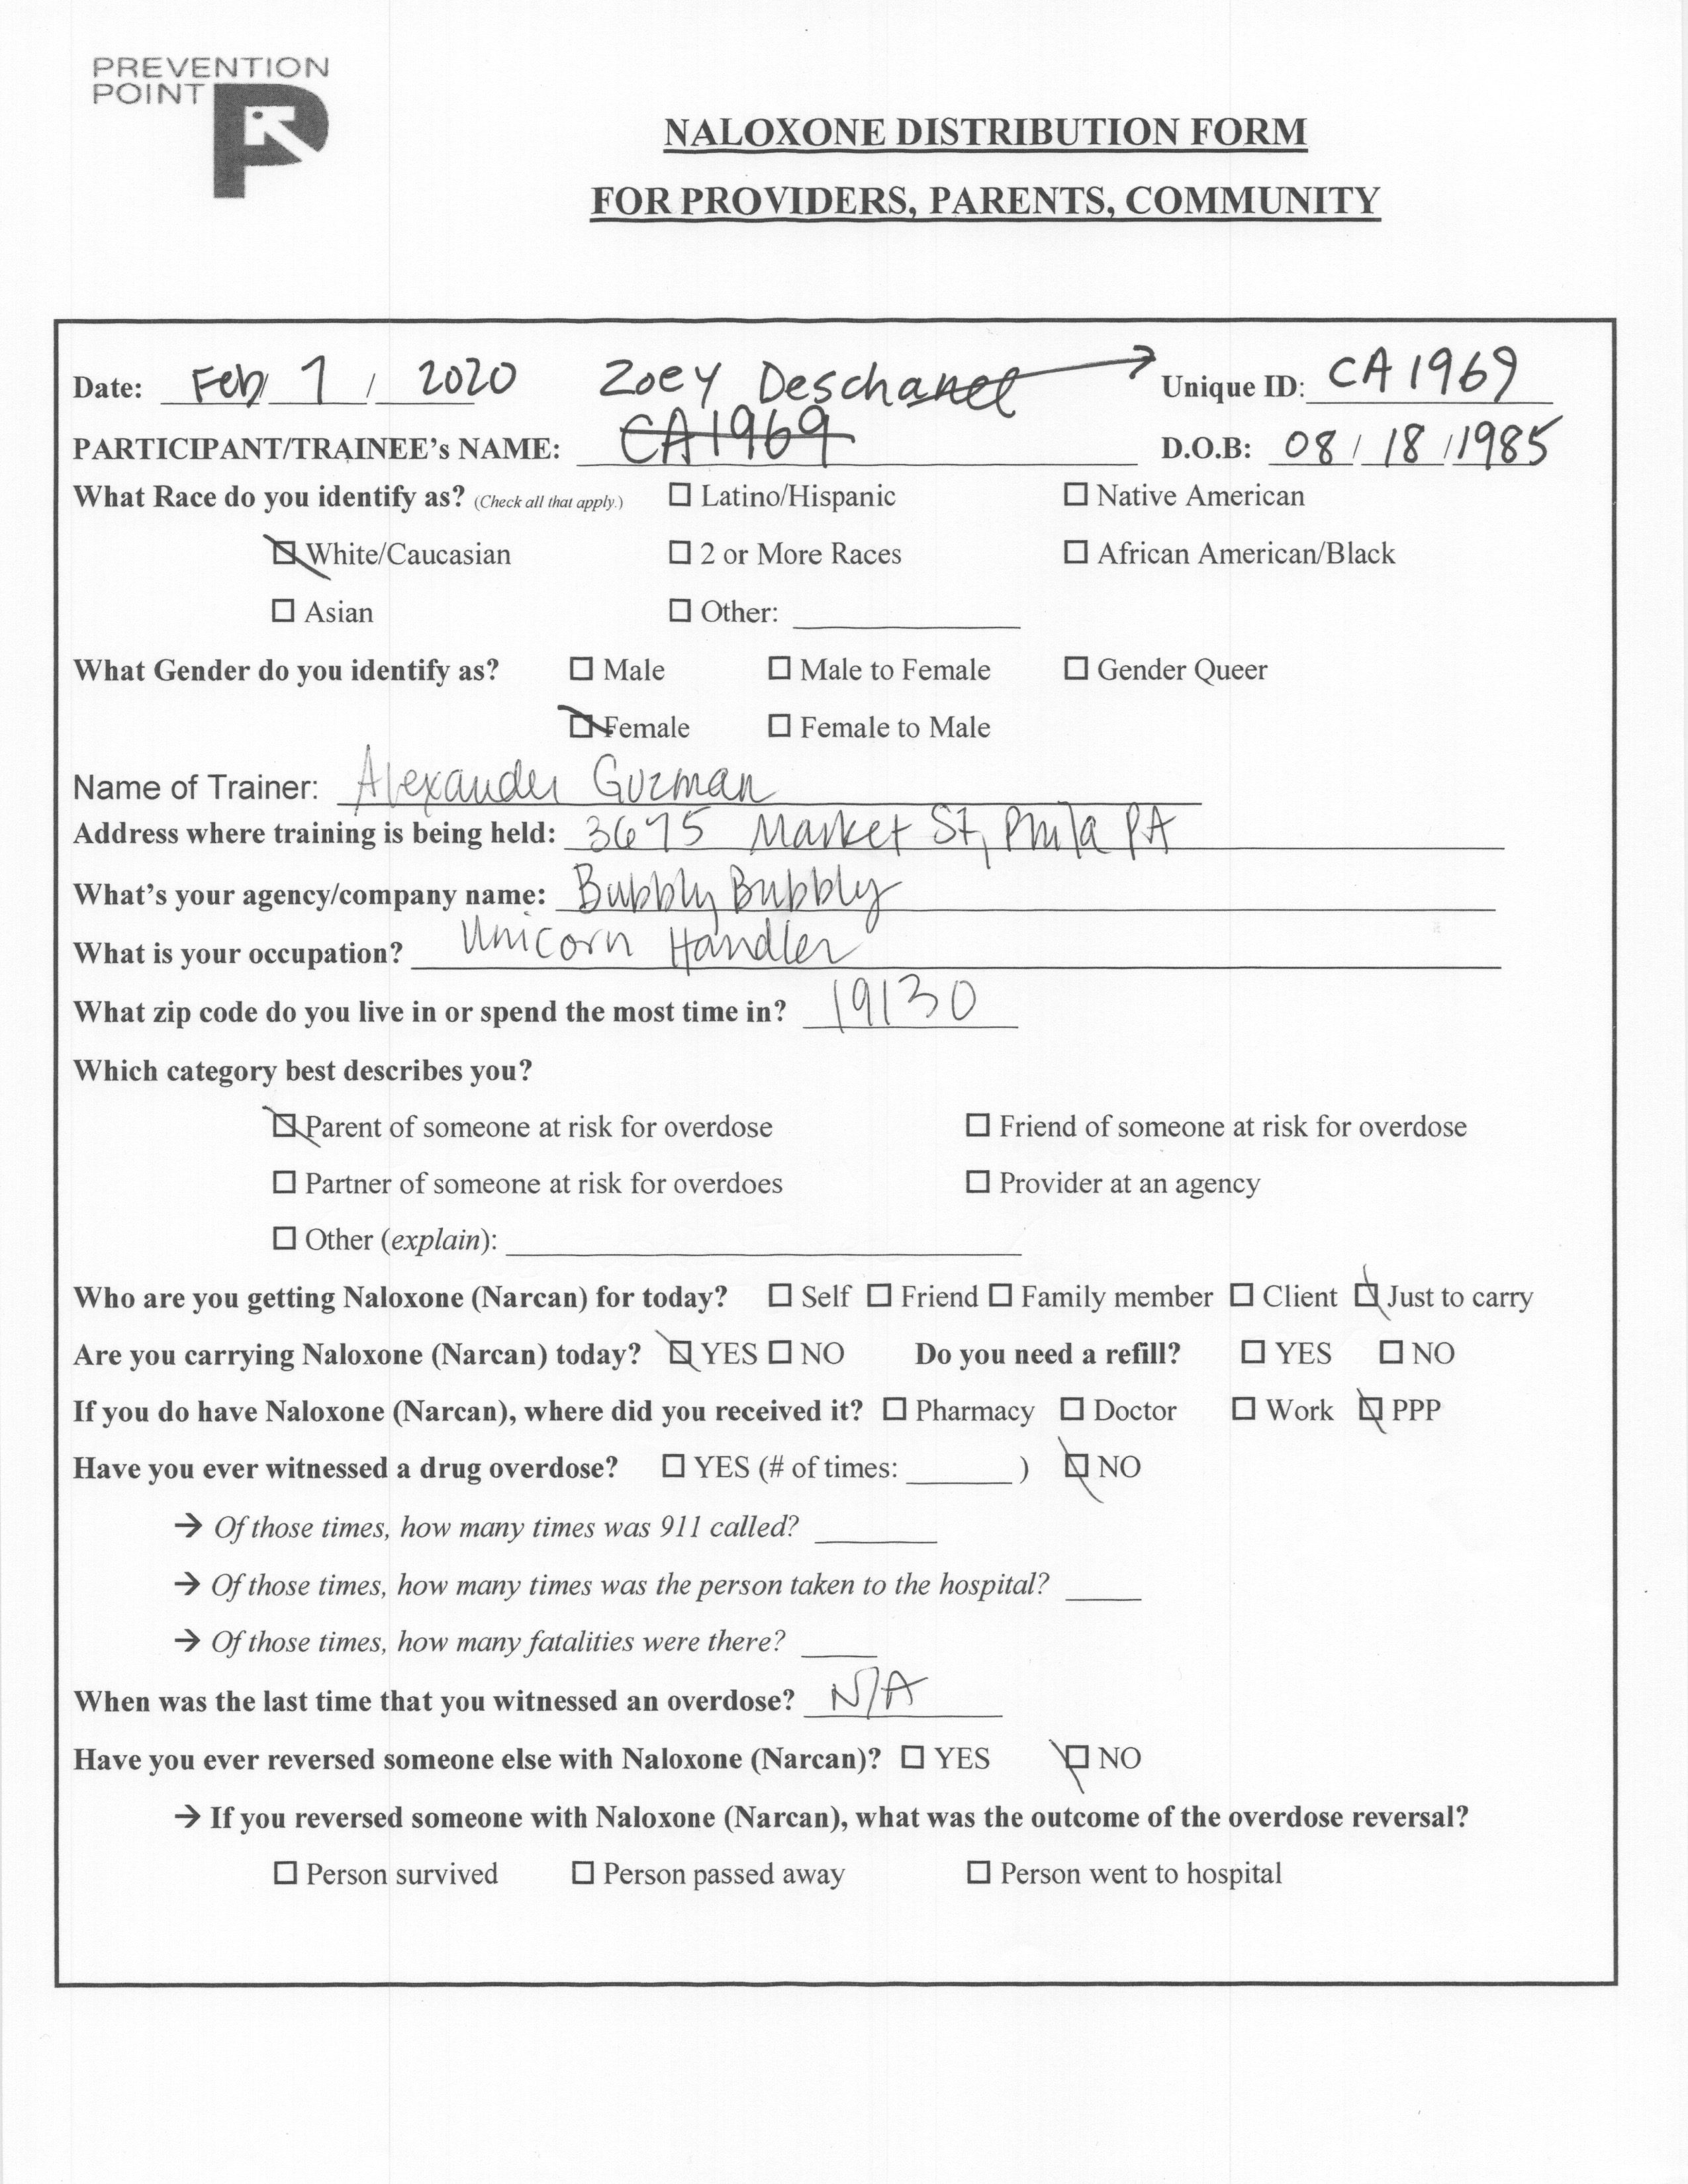 PREVENTION
POINT
NALOXONE DISTRIBUTION FORM
FOR PROVIDERS, PARENTS, COMMUNITY
Date: Feb / 7 / 2020 Zoey Deschanel → Unique ID: CA1969
PARTICIPANT/TRAINEE's NAME: CA1969 D.O.B: 08 / 18 / 1985
What Race do you identify as? (Check all that apply.) ☐ Latino/Hispanic ☐ Native American
☒ White/Caucasian ☐ 2 or More Races ☐ African American/Black
☐ Asian ☐ Other: ____
What Gender do you identify as? ☐ Male ☐ Male to Female ☐ Gender Queer
☒ Female ☐ Female to Male
Name of Trainer: Alexander Guzman
Address where training is being held: 3675 Market St, Phila PA
What's your agency/company name: Bubbly Bubbly
What is your occupation? Unicorn Handler
What zip code do you live in or spend the most time in? 19130
Which category best describes you?
☒ Parent of someone at risk for overdose ☐ Friend of someone at risk for overdose
☐ Partner of someone at risk for overdoes ☐ Provider at an agency
☐ Other (explain): ____
Who are you getting Naloxone (Narcan) for today? ☐ Self ☐ Friend ☐ Family member ☐ Client ☒ Just to carry
Are you carrying Naloxone (Narcan) today? ☒ YES ☐ NO Do you need a refill? ☐ YES ☐ NO
If you do have Naloxone (Narcan), where did you received it? ☐ Pharmacy ☐ Doctor ☐ Work ☒ PPP
Have you ever witnessed a drug overdose? ☐ YES (# of times: ____ ) ☒ NO
→ Of those times, how many times was 911 called? ____
→ Of those times, how many times was the person taken to the hospital? ____
→ Of those times, how many fatalities were there? ____
When was the last time that you witnessed an overdose? N/A
Have you ever reversed someone else with Naloxone (Narcan)? ☐ YES ☒ NO
→ If you reversed someone with Naloxone (Narcan), what was the outcome of the overdose reversal?
☐ Person survived ☐ Person passed away ☐ Person went to hospital